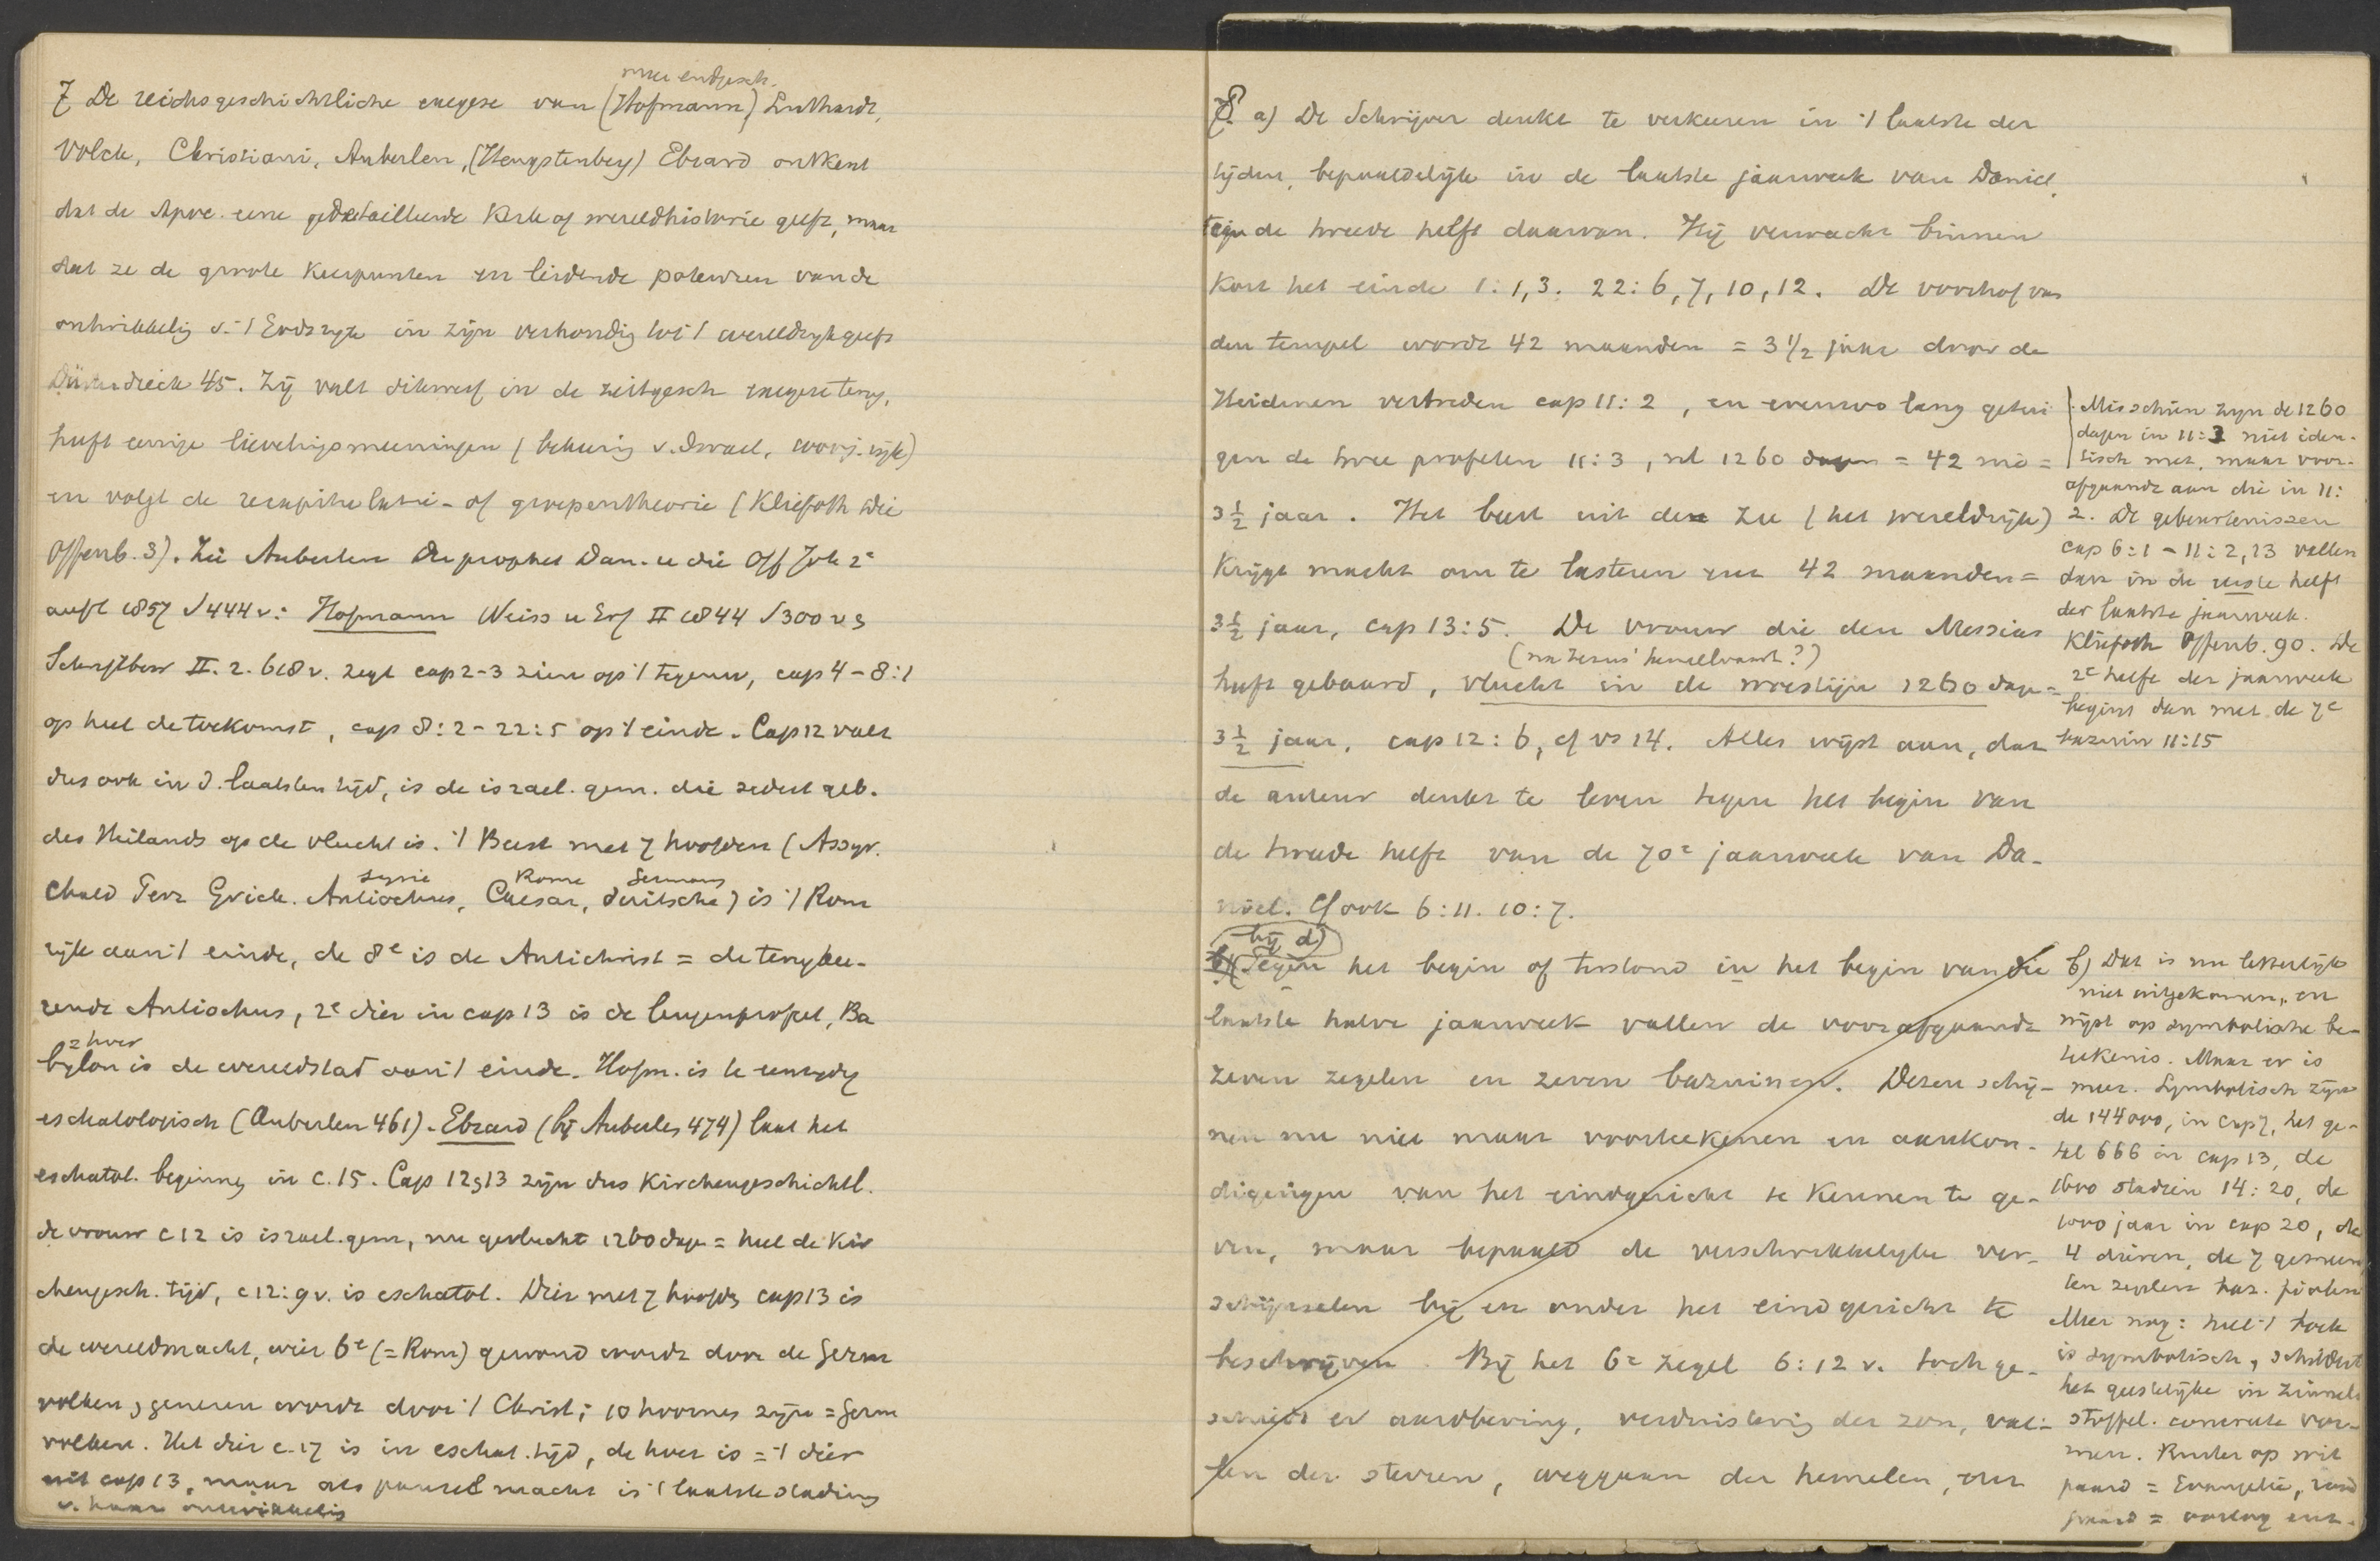 meer endgesch.
7 De reichsgeschichtliche exegese van (Hofmann) Luthardt,
Volck, Christiani, Auberlen, (Hengstenberg) Ebrard ontkent
dat de Apoc. eene gedetailleerde Kerk of wereldhistorie geeft, maar
dat ze de groote keerpunten en leidende potenzen van de
ontwikkelig v. 't Godsryk in zijn verhoudig tot 't wereldryk geeft
Düsterdieck 45. Zij valt dikwerf in de zeitgesch exegese terug,
heeft eenige lievelingsmeeningen (bekeerig v. Israel, rijk)
en volgt de recapitulatie- of groepentheorie (Kliefoth die
Offenb. 3). Zie Auberlen Der prophet Dan. u die Off Joh 2e
aufl 1857 S 444 v: Hofmann Weiss u Erf II 1844 S 300 v
Schriftbew II. 2. 618 v. zegt cap 2-3 zien op 't tegenw, cap 4-8:1
op heel de toekomst, cap 8:2-22:5 op 't einde. Cap 12 valt
dus ook in d. laatsten tijd, is de israel. gem. die sedert geb.
des Heilands op de vlucht is. 't Beest met 7 hoofden (Assyr.
Syrie Rome Germans
Chald Perz Griek. Antiochus, Caesar, duitsche) is 't Rom
rijk aan 't einde, de 8e is de Antichrist = de terugkee-
rende Antiochus, 2e dier in cap 13 is de leugenprofeet, Ba
= hoer
bylon is de wereldstad aan 't einde. Hofm. is te eenzydig
eschatologisch (Auberlen 461). Ebrard (bij Auberlen 474) laat het
eschatol. beginnen in c. 15. Cap 12 13 zijn dus Kirchengeschichtl.
de vrouw c 12 is israel. gem, nu gevlucht 1260 dage = heel de Kir
chengesch. tijd, c 12:9 v. is eschatol. Dier met 7 hoofdn cap 13 is
de wereldmacht, wier 6e (= Rom) gewond wordt door de Germ
volken, genezen wordt door 't Christ; 10 hoornen zijn = Germ
volken. Het dier c. 17 is in eschat. tijd, de hoer is = 't dier
uit cap 13, maar als pauselt macht is 't laatste stadium
v. haar ontwikkelig
8. a) De Schrijver denkt te verkeeren in 't laatste der
tijden, bepaaldelijk in de laatste jaarweek van Daniel,
de tweede helft daarvan. Hij verwacht binnen
kort het einde 1:1,3. 22:6,7,10,12. De voorhof van
den tempel wordt 42 maanden = 3 1/2 jaar door de
Heidenen vertreden cap 11:2, en evenzoo lang getui
gen de twee profeten 11:3, nl 1260 dagen = 42 mo =
3 1/2 jaar. Het beest uit de zee (het wereldrijk)
krijgt macht om te lasteren 42 maanden =
3 1/2 jaar, cap 13:5. De vrouw die den Messias
(na Jezus' hemelvaart?)
heeft gebaard, vlucht in de woestijn 1260 dage =
3 1/2 jaar, cap 12:6, cf vs 14. Alles wijst aan, dat
de auteur denkt te leven tegen het begin van
de tweede helft van de 70e jaarweek van Da-
niel. Cf ook 6:11. 10:7.
bij d)
b) (Tegen het begin of terstond in het begin van die
laatste halve jaarweek vallen de voorafgaande
zeven zegelen en zeven bazuinen. Dezen schij-
nen nu niet maar voorteekenen en aankon-
digingen van het eindgericht te kennen te ge-
ven, maar bepaald de verschrikkelyke ver-
schijnselen bij en onder het eindgericht te
beschrijven. Bij het 6e zegel 6:12 v. toch ge-
schiedt er aardbeving, verduistering der zon, val-
len der sterren, weggaan der hemelen, om
Misschien zyn de 1260
dagen in 11:3 niet iden-
tisch met, maar voor-
afgaande aan die in 11:
2. De gebeurtenissen
cap 6:1 - 11:2, 13 vallen
dan in de eerste helft
der laatste jaarweek.
Kliefoth Offenb. 90. De
2e helft der jaarweek
begint dan met de 7e
bazuin 11:15
b) Dat is nu letterlijk
niet uitgekomen, en
wijst op symbolische be-
teekenis. Maar er is
meer. Symbolisch zijn
de 144000, in cap 7, het ge-
tal 666 in cap 13, de
1600 stadien 14:20, de
1000 jaar in cap 20, de
4 dieren, de 7 gemeen
ten zegelen baz. fiolen
Meer nog: heel 't boek
is symbolisch, schildert
het geestelijke in zinnel.
stoffel. concrete vor-
men. Ruiter op wit
paard = Evangelie, rood
paard = oorlog enz.